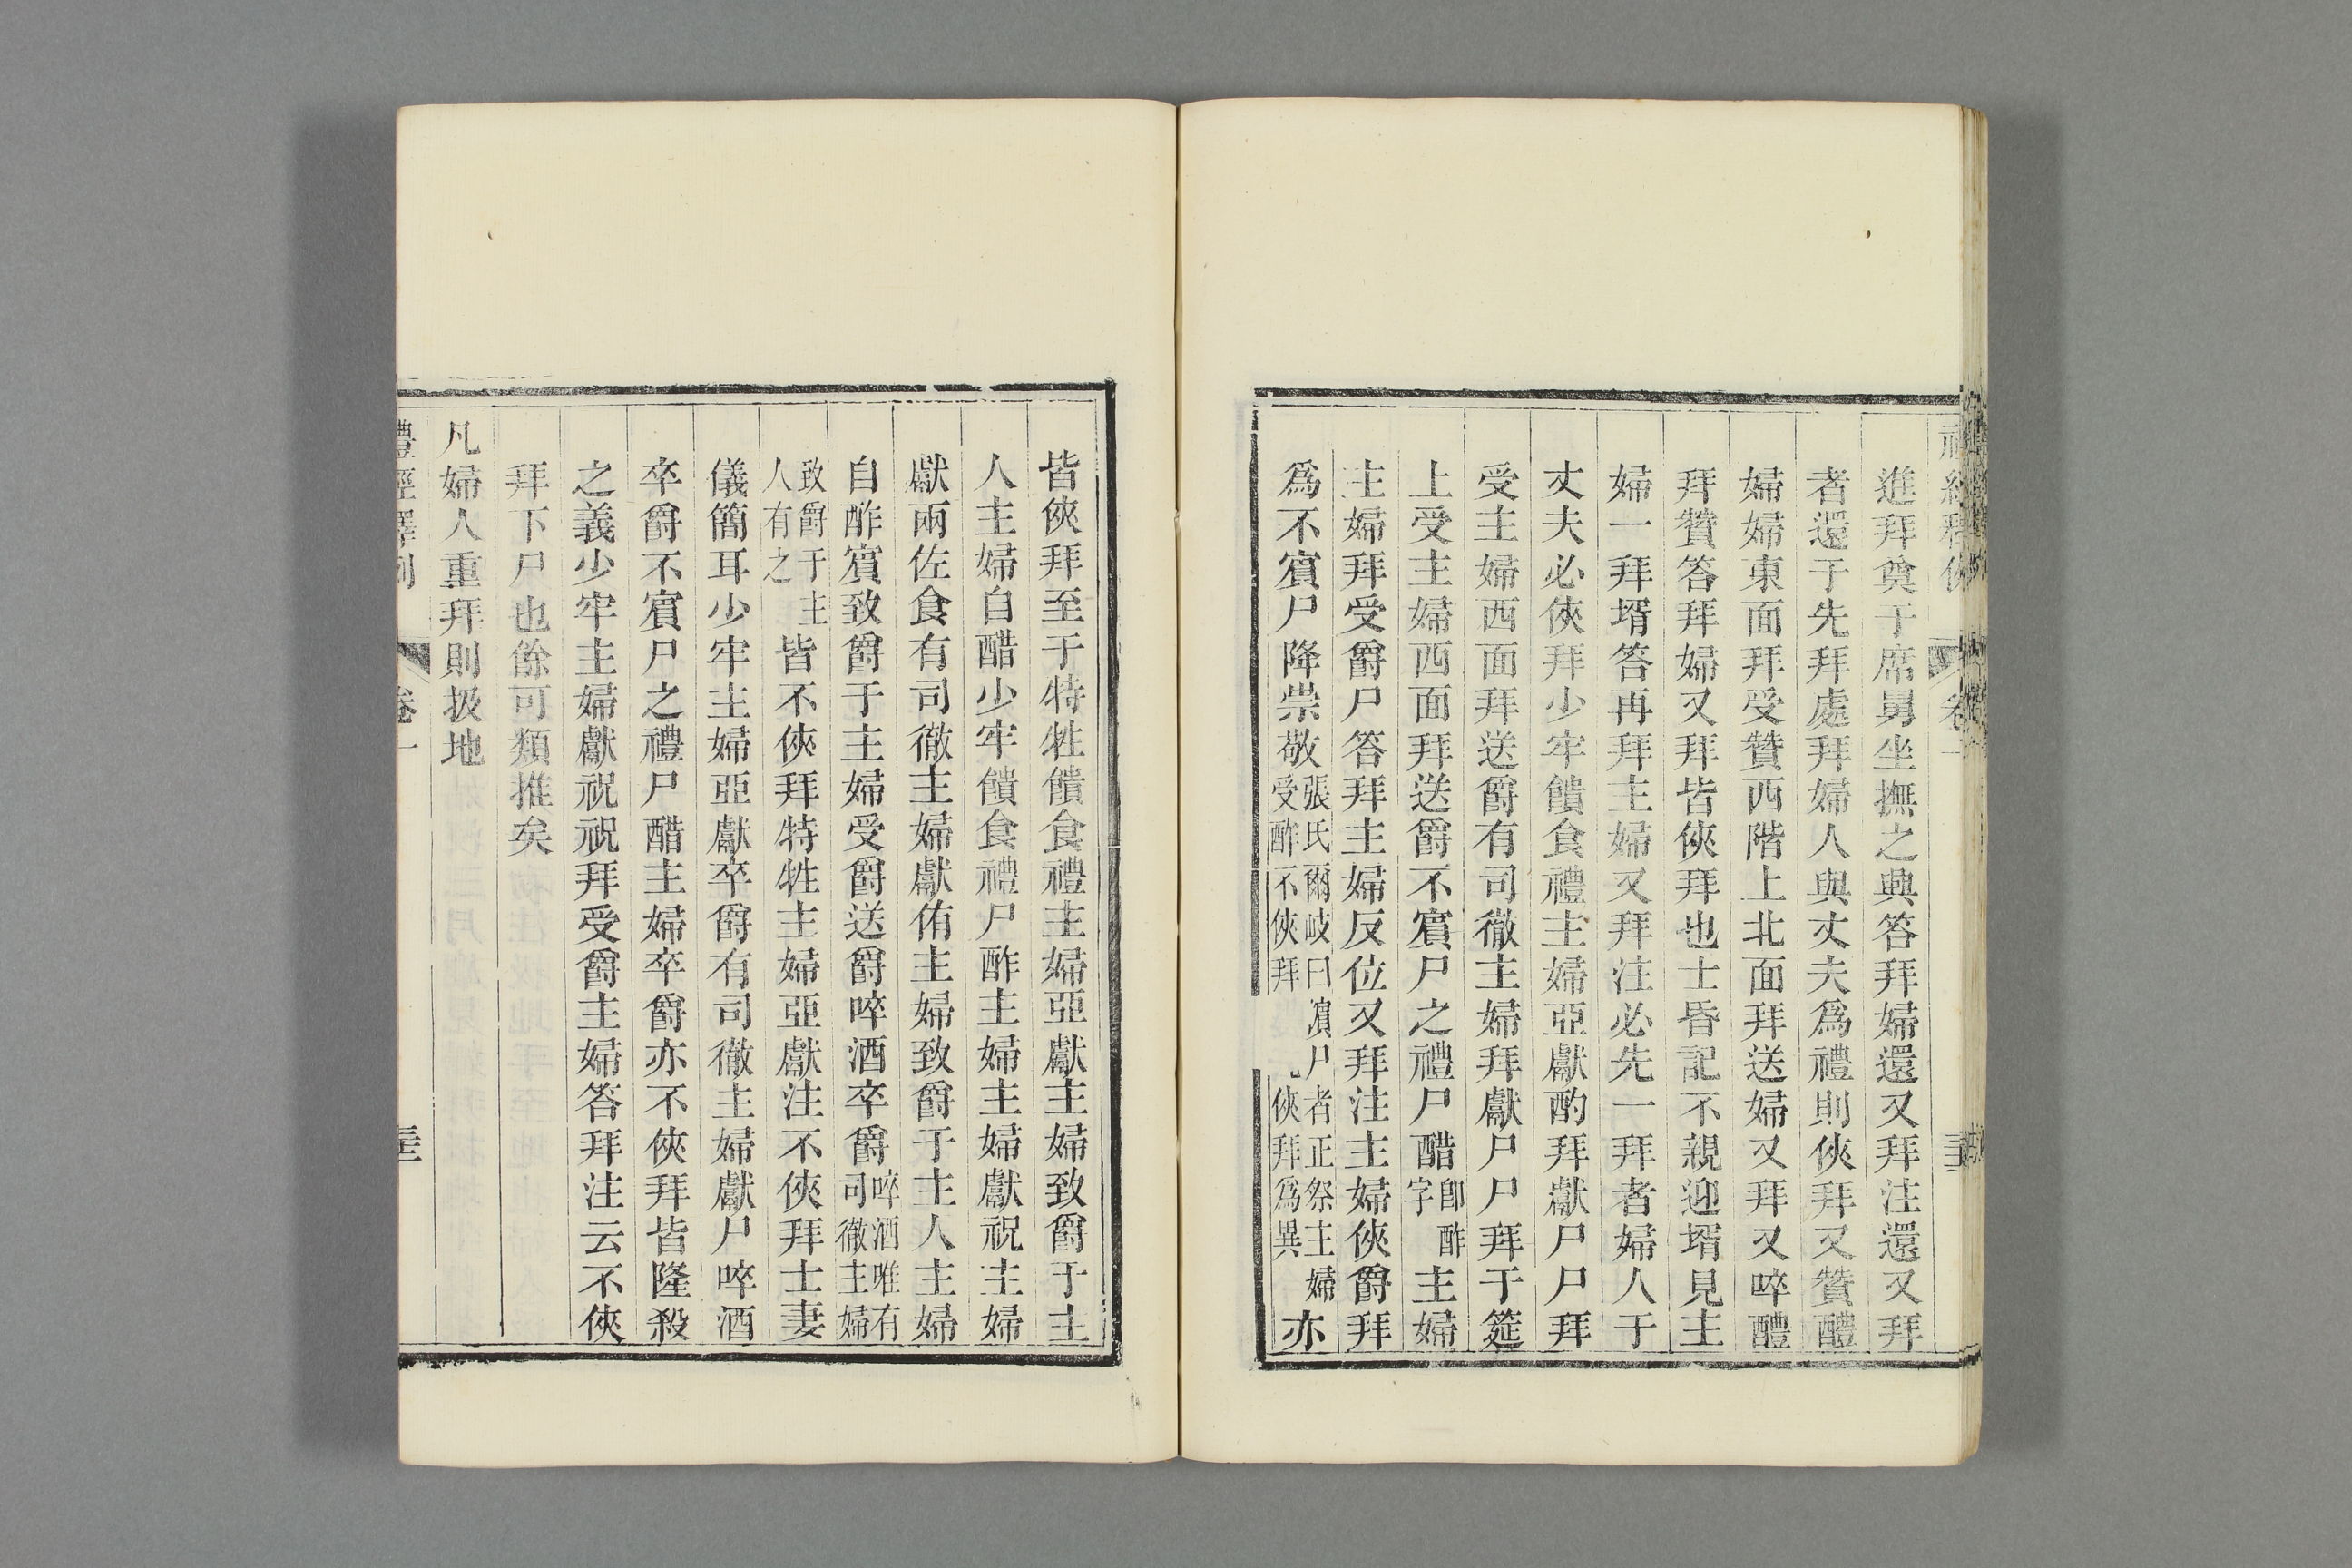 進拜奠于席舅坐撫之興答拜婦還又拜注還又拜
者還于先拜處拜婦人與丈夫爲禮則俠拜又贊醴
婦婦東面拜受贊西階上北面拜送婦又拜又啐醴
拜贊答拜婦又拜皆俠拜也士昏記不親迎壻見主
婦一拜壻答再拜主婦又拜注必先一拜者婦人于
丈夫必俠拜少牢饋食禮主婦亞獻酌拜獻尸尸拜
受主婦西面拜送爵有司徹主婦拜獻尸尸拜于筵
上受主婦西面拜送爵不賓尸之禮尸醋卽酢字主婦
主婦拜受爵尸答拜主婦反位又拜注主婦俠爵拜
爲不賓尸降崇敬張氏爾岐曰賓尸者正祭主婦受酢不俠拜俠拜爲異亦
皆俠拜至于特牲饋食禮主婦亞獻主婦致爵于主
人主婦自醋少牢饋食禮尸酢主婦主婦獻祝主婦
獻兩佐食有司徹主婦獻侑主婦致爵于主人主婦
自酢賓致爵于主婦受爵送爵啐酒卒爵啐酒唯有司徹主婦
致爵于主人有之皆不俠拜特牲主婦亞獻注不俠拜士妻
儀簡耳少牢主婦亞獻卒爵有司徹主婦獻尸啐酒
卒爵不賓尸之禮尸醋主婦卒爵亦不俠拜皆隆殺
之義少牢主婦獻祝祝拜受爵主婦答拜注云不俠
拜下尸也餘可類推矣
凡婦人重拜則扱地
禮經釋例 卷一